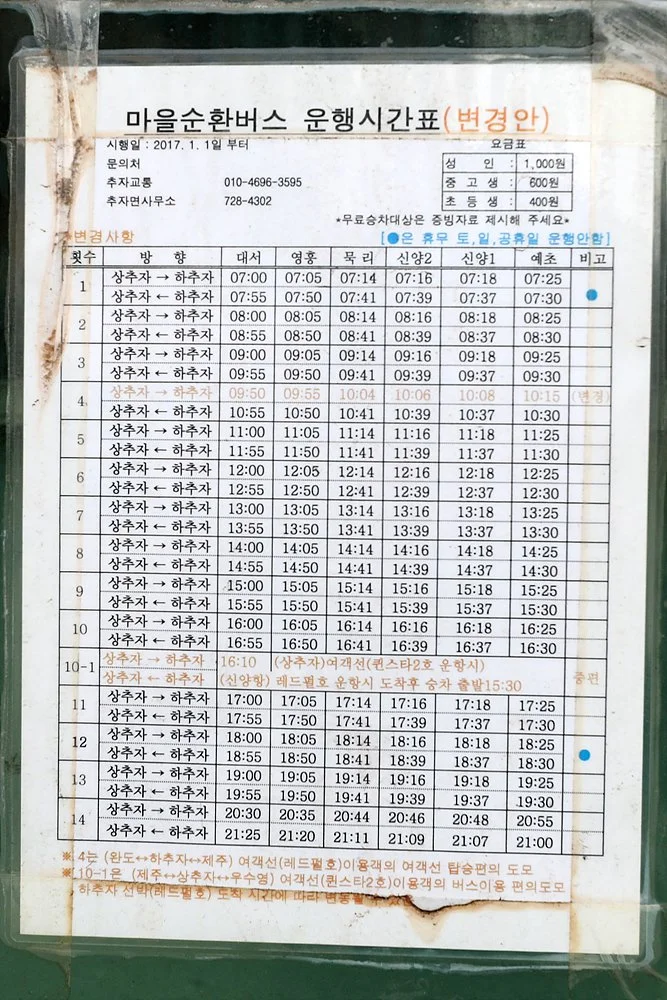 마을순환버스 운행시간표(변경안)
시행일 : 2017. 1. 1일 부터
요금표
문의처
성 인 : 1,000원
추자교통 010-4696-3595
중 고 생 : 600원
추자면사무소 728-4302
초 등 생 : 400원
*무료승차대상은 증빙자료 제시해 주세요*
변경사항 [●은 휴무 토,일,공휴일 운행안함]
횟수 방 향 대서 영흥 묵리 신양2 신양1 예초 비고
1 상추자 → 하추자 07:00 07:05 07:14 07:16 07:18 07:25 ●
상추자 ← 하추자 07:55 07:50 07:41 07:39 07:37 07:30
2 상추자 → 하추자 08:00 08:05 08:14 08:16 08:18 08:25
상추자 ← 하추자 08:55 08:50 08:41 08:39 08:37 08:30
3 상추자 → 하추자 09:00 09:05 09:14 09:16 09:18 09:25
상추자 ← 하추자 09:55 09:50 09:41 09:39 09:37 09:30
4 상추자 → 하추자 09:50 09:55 10:04 10:06 10:08 10:15 (변경)
상추자 ← 하추자 10:55 10:50 10:41 10:39 10:37 10:30
5 상추자 → 하추자 11:00 11:05 11:14 11:16 11:18 11:25
상추자 ← 하추자 11:55 11:50 11:41 11:39 11:37 11:30
6 상추자 → 하추자 12:00 12:05 12:14 12:16 12:18 12:25
상추자 ← 하추자 12:55 12:50 12:41 12:39 12:37 12:30
7 상추자 → 하추자 13:00 13:05 13:14 13:16 13:18 13:25
상추자 ← 하추자 13:55 13:50 13:41 13:39 13:37 13:30
8 상추자 → 하추자 14:00 14:05 14:14 14:16 14:18 14:25
상추자 ← 하추자 14:55 14:50 14:41 14:39 14:37 14:30
9 상추자 → 하추자 15:00 15:05 15:14 15:16 15:18 15:25
상추자 ← 하추자 15:55 15:50 15:41 15:39 15:37 15:30
10 상추자 → 하추자 16:00 16:05 16:14 16:16 16:18 16:25
상추자 ← 하추자 16:55 16:50 16:41 16:39 16:37 16:30
10-1 상추자 → 하추자 16:10 (상추자)여객선(퀸스타2호 운항시) 중편
상추자 ← 하추자 (신양항) 레드펄호 운항시 도착후 승차 출발15:30
11 상추자 → 하추자 17:00 17:05 17:14 17:16 17:18 17:25
상추자 ← 하추자 17:55 17:50 17:41 17:39 17:37 17:30
12 상추자 → 하추자 18:00 18:05 18:14 18:16 18:18 18:25 ●
상추자 ← 하추자 18:55 18:50 18:41 18:39 18:37 18:30
13 상추자 → 하추자 19:00 19:05 19:14 19:16 19:18 19:25
상추자 ← 하추자 19:55 19:50 19:41 19:39 19:37 19:30
14 상추자 → 하추자 20:30 20:35 20:44 20:46 20:48 20:55
상추자 ← 하추자 21:25 21:20 21:11 21:09 21:07 21:00
※ 4는 (완도↔하추자↔제주) 여객선(레드펄호)이용객의 여객선 탑승편의 도모
※ 10-1은 (제주↔상추자↔우수영) 여객선(퀸스타2호)이용객의 버스이용 편의도모
하추자 선박(레드펄호) 도착 시간에 따라